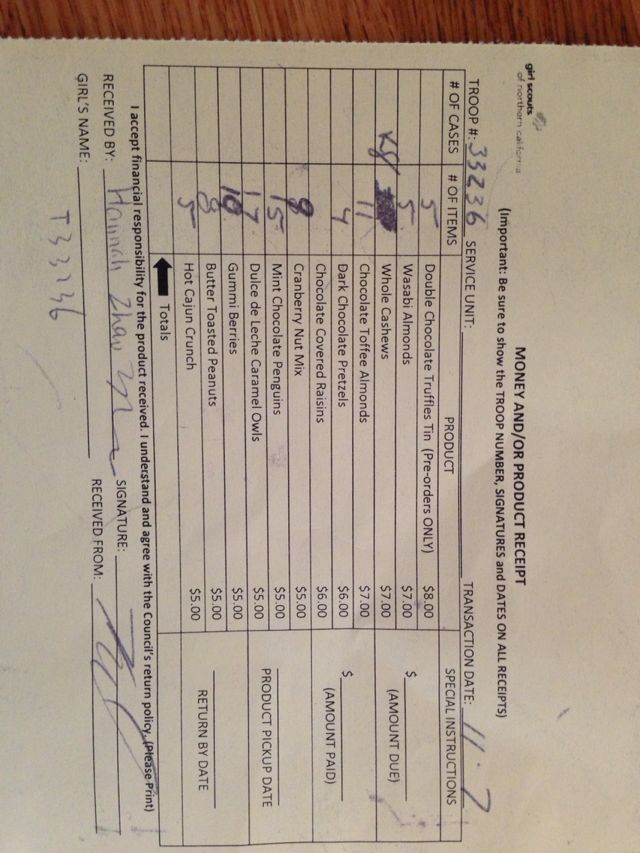 girl scouts
of northern california
MONEY AND/OR PRODUCT RECEIPT
(Important: Be sure to show the TROOP NUMBER, SIGNATURES and DATES ON ALL RECEIPTS)
TROOP #: 33236 SERVICE UNIT: TRANSACTION DATE: 11.7
# OF CASES # OF ITEMS PRODUCT SPECIAL INSTRUCTIONS
5 Double Chocolate Truffles Tin (Pre-orders ONLY) $8.00
5 Wasabi Almonds $7.00 $
Whole Cashews $7.00 (AMOUNT DUE)
11 Chocolate Toffee Almonds $7.00
4 Dark Chocolate Pretzels $6.00 $
Chocolate Covered Raisins $6.00 (AMOUNT PAID)
Cranberry Nut Mix $5.00
15 Mint Chocolate Penguins $5.00
17 Dulce de Leche Caramel Owls $5.00 PRODUCT PICKUP DATE
10 Gummi Berries $5.00
8 Butter Toasted Peanuts $5.00
5 Hot Cajun Crunch $5.00 RETURN BY DATE
Totals
I accept financial responsibility for the product received. I understand and agree with the Council's return policy. (Please Print)
RECEIVED BY: Hannah Zhau SIGNATURE:
GIRL'S NAME: RECEIVED FROM:
T33236